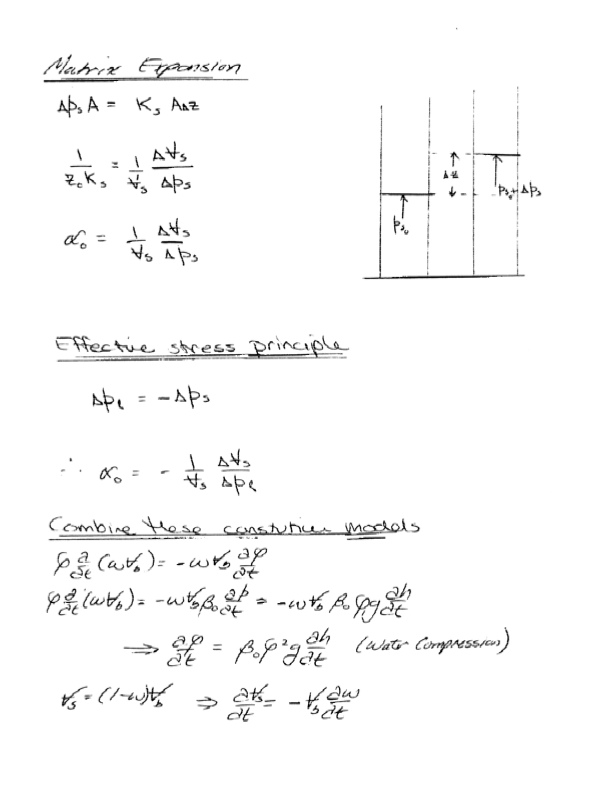 Matrix Expansion
Δp_s A = K_s A Δz
1/(z_o K_s) = 1/V̶_s ΔV̶_s/Δp_s
α_o = 1/V̶_s ΔV̶_s/Δp_s
Δz
p_so
p_so + Δp_s
Effective stress principle
Δp_l = -Δp_s
∴ α_o = - 1/V̶_s ΔV̶_s/Δp_l
Combine these constutive models
φ ∂/∂t (ωV̶_b) = -ωV̶_b ∂φ/∂t
φ ∂/∂t (ωV̶_b) = -ωV̶_b β_o ∂p/∂t = -ωV̶_b β_o φg ∂h/∂t
⇒ ∂φ/∂t = β_o φ² g ∂h/∂t (Water Compression)
V̶_s = (1-ω)V̶_b ⇒ ∂V̶_s/∂t = -V̶_b ∂ω/∂t